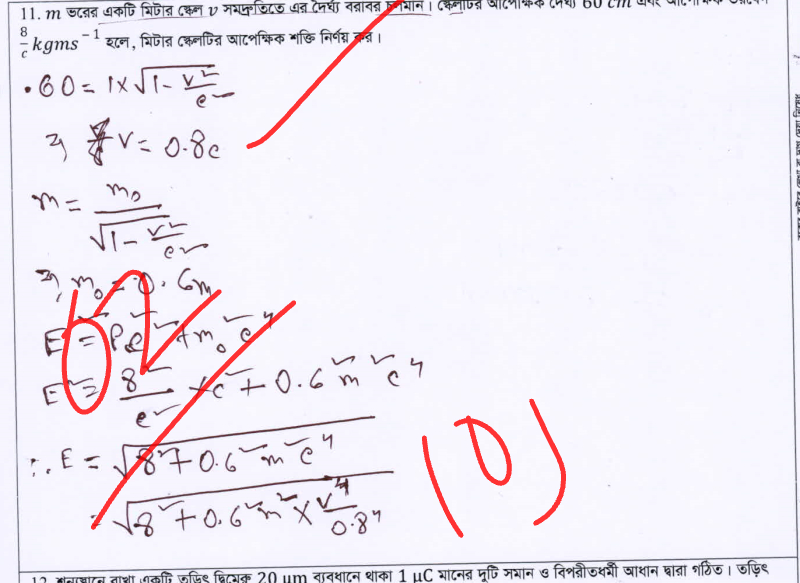 11. m ভরের একটি মিটার স্কেল v সমদ্রুতিতে এর দৈর্ঘ্য বরাবর চলমান। স্কেলটির আপেক্ষিক দৈর্ঘ্য 60 cm এবং আপেক্ষিক ভরবেগ
8/c kgms⁻¹ হলে, মিটার স্কেলটির আপেক্ষিক শক্তি নির্ণয় কর।
60 = 1×√(1 - v²/c²)
⇒ v = 0.8c
m = m₀/√(1 - v²/c²)
⇒ m₀ = 0.6m
E² = P²c² + m₀²c⁴
E² = 8²/c² × c² + 0.6²m²c⁴
∴ E = √(8² + 0.6²m²c⁴)
= √(8² + 0.6²m² × v⁴/0.8⁴)
(0)
12. শূন্যস্থানে রাখা একটি তড়িৎ দ্বিমেরু 20 μm ব্যবধানে থাকা 1 μC মানের দুটি সমান ও বিপরীতধর্মী আধান দ্বারা গঠিত। তড়িৎ